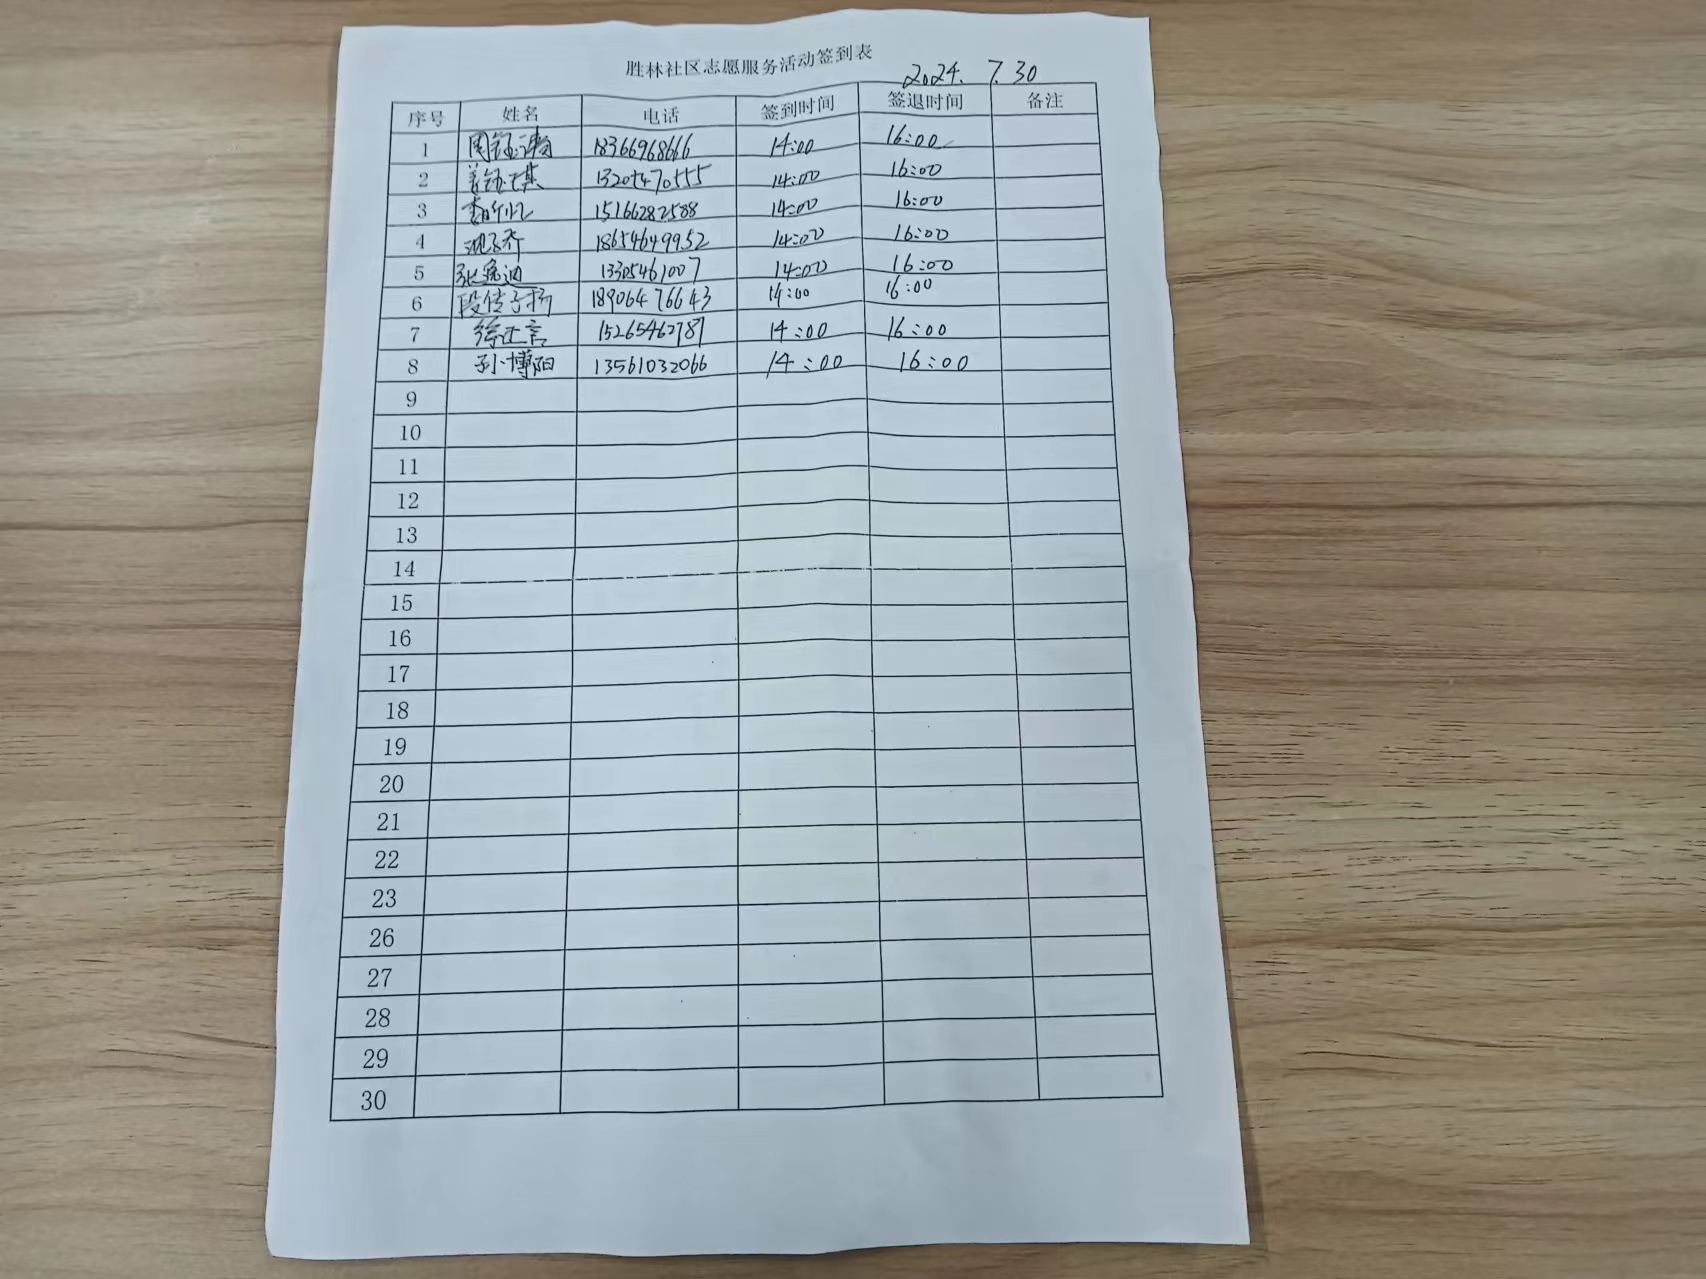 胜林社区志愿服务活动签到表
2024. 7.30
序号 姓名 电话 签到时间 签退时间 备注
1 周钰 18366968666 14:00 16:00
2 姜钰琪 13205470555 14:00 16:00
3 15166282588 14:00 16:00
4 18654649952 14:00 16:00
5 张逸迪 13305461007 14:00 16:00
6 段传子扬 18906476643 14:00 16:00
7 徐正言 15265462787 14:00 16:00
8 孙博阳 13561032066 14:00 16:00
9
10
11
12
13
14
15
16
17
18
19
20
21
22
23
26
27
28
29
30